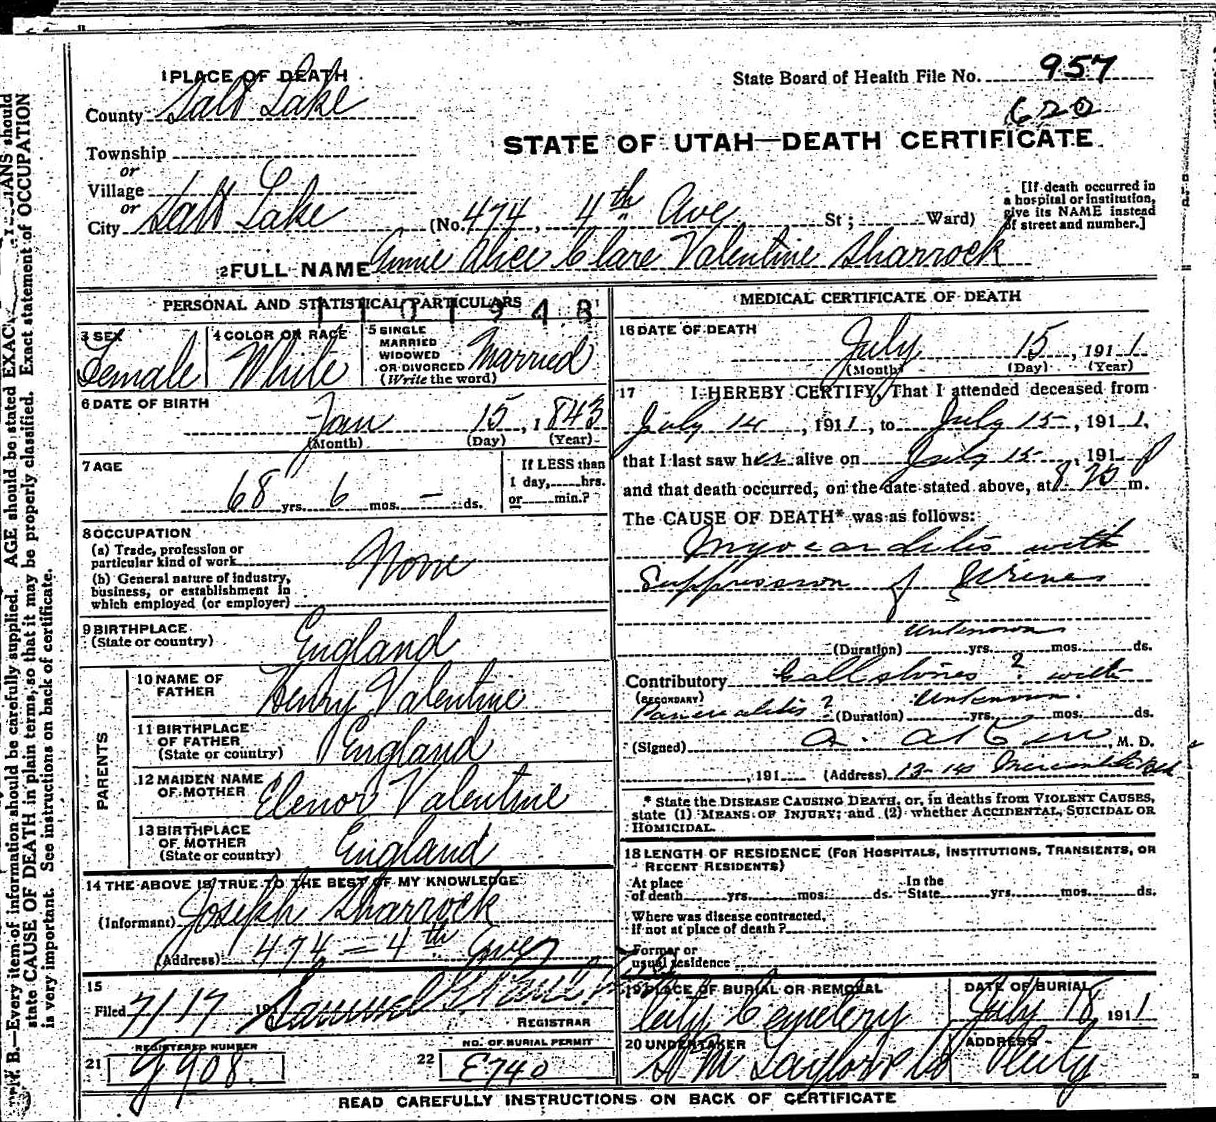 1 PLACE OF DEATH
County Salt Lake
Township
or
Village
or
City Salt Lake (No. 474, 4th Ave St; Ward)
State Board of Health File No. 957
620
STATE OF UTAH—DEATH CERTIFICATE
[If death occurred in
a hospital or institution,
give its NAME instead
of street and number.]
2 FULL NAME Annie Alice Clare Valentine Sharrock
PERSONAL AND STATISTICAL PARTICULARS
3 SEX Female
4 COLOR OR RACE White
5 SINGLE
MARRIED
WIDOWED
OR DIVORCED
(Write the word) Married
6 DATE OF BIRTH
Jan 15, 1843
(Month) (Day) (Year)
7 AGE
68 yrs. 6 mos. — ds.
If LESS than
1 day, hrs.
or min.?
8 OCCUPATION
(a) Trade, profession or
particular kind of work None
(b) General nature of industry,
business, or establishment in
which employed (or employer)
9 BIRTHPLACE
(State or country) England
PARENTS
10 NAME OF
FATHER Henry Valentine
11 BIRTHPLACE
OF FATHER
(State or country) England
12 MAIDEN NAME
OF MOTHER Elenor Valentine
13 BIRTHPLACE
OF MOTHER
(State or country) England
14 THE ABOVE IS TRUE TO THE BEST OF MY KNOWLEDGE
(Informant) Joseph Sharrock
(Address) 474 - 4th Ave
15
Filed 7/17 191 Samuel
REGISTRAR
21 REGISTERED NUMBER
g 908.
22 NO. OF BURIAL PERMIT
E740
MEDICAL CERTIFICATE OF DEATH
16 DATE OF DEATH
July 15, 1911
(Month) (Day) (Year)
17 I HEREBY CERTIFY, That I attended deceased from
July 14, 1911, to July 15, 1911,
that I last saw her alive on July 15, 191
and that death occurred, on the date stated above, at 8.20 m.
The CAUSE OF DEATH* was as follows:
Myocarditis with
Suppression of Urine
Unknown
(Duration) yrs. mos. ds.
Contributory Gallstones? with
(SECONDARY) Unknown.
Pancreatitis? (Duration) yrs. mos. ds.
(Signed) M. D.
, 191 (Address) 13-14 Mercantile Blk
* State the DISEASE CAUSING DEATH, or, in deaths from VIOLENT CAUSES,
state (1) MEANS OF INJURY; and (2) whether ACCIDENTAL, SUICIDAL OR
HOMICIDAL.
18 LENGTH OF RESIDENCE (FOR HOSPITALS, INSTITUTIONS, TRANSIENTS, OR
RECENT RESIDENTS)
At place
of death yrs. mos. ds.
In the
State yrs. mos. ds.
Where was disease contracted,
if not at place of death?
Former or
usual residence
19 PLACE OF BURIAL OR REMOVAL
City Cemetery
DATE OF BURIAL
July 18, 1911
20 UNDERTAKER
S M Taylor & Co
ADDRESS
City
READ CAREFULLY INSTRUCTIONS ON BACK OF CERTIFICATE
N. B.—Every item of information should be carefully supplied. AGE should be stated EXACTLY. PHYSICIANS should
state CAUSE OF DEATH in plain terms, so that it may be properly classified. Exact statement of OCCUPATION
is very important. See instructions on back of certificate.